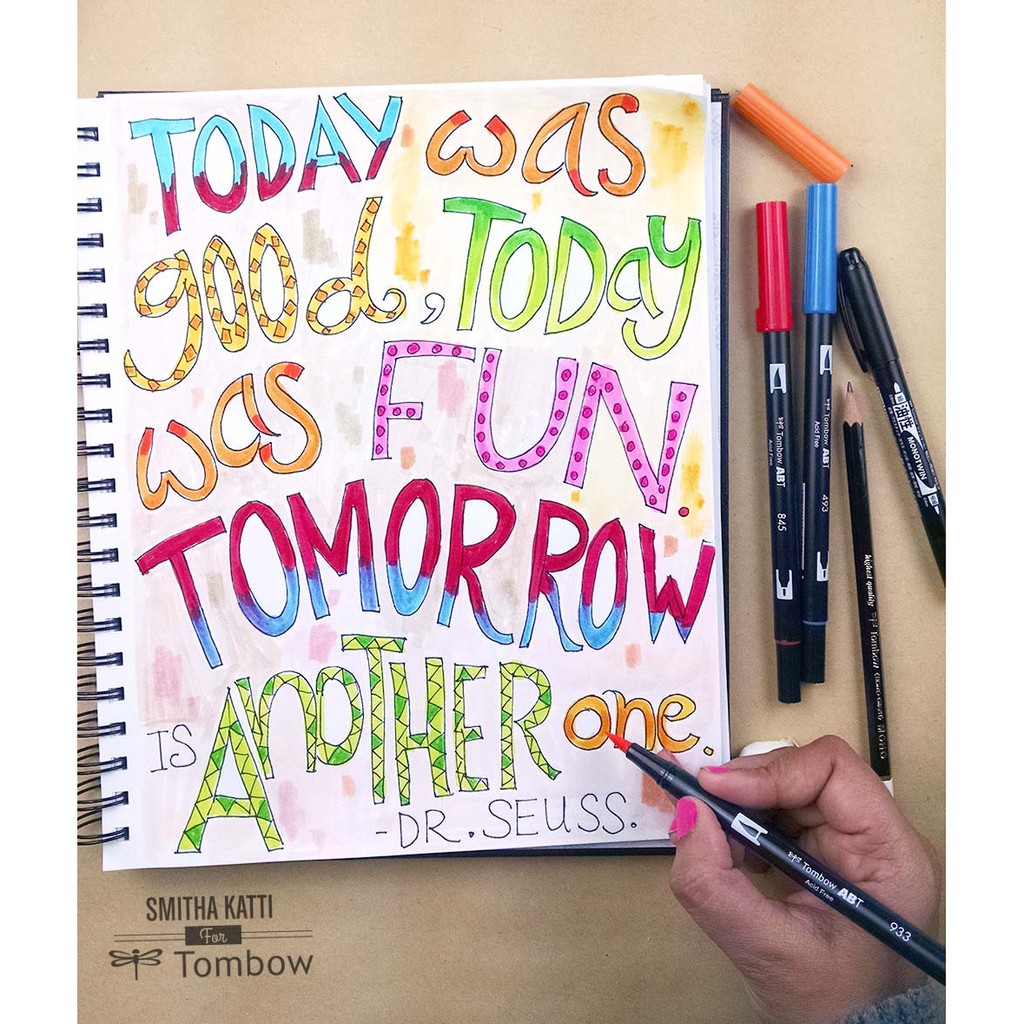 TODAY was
good, TODay
was FUN.
TOMORROW
IS ANOTHER one.
-DR. SEUSS.
Tombow ABT
Acid Free
845
Tombow ABT
Acid Free
493
MONOTWIN
highest quality Tombow MONO
Tombow ABT
Acid Free
933
SMITHA KATTI
For
Tombow